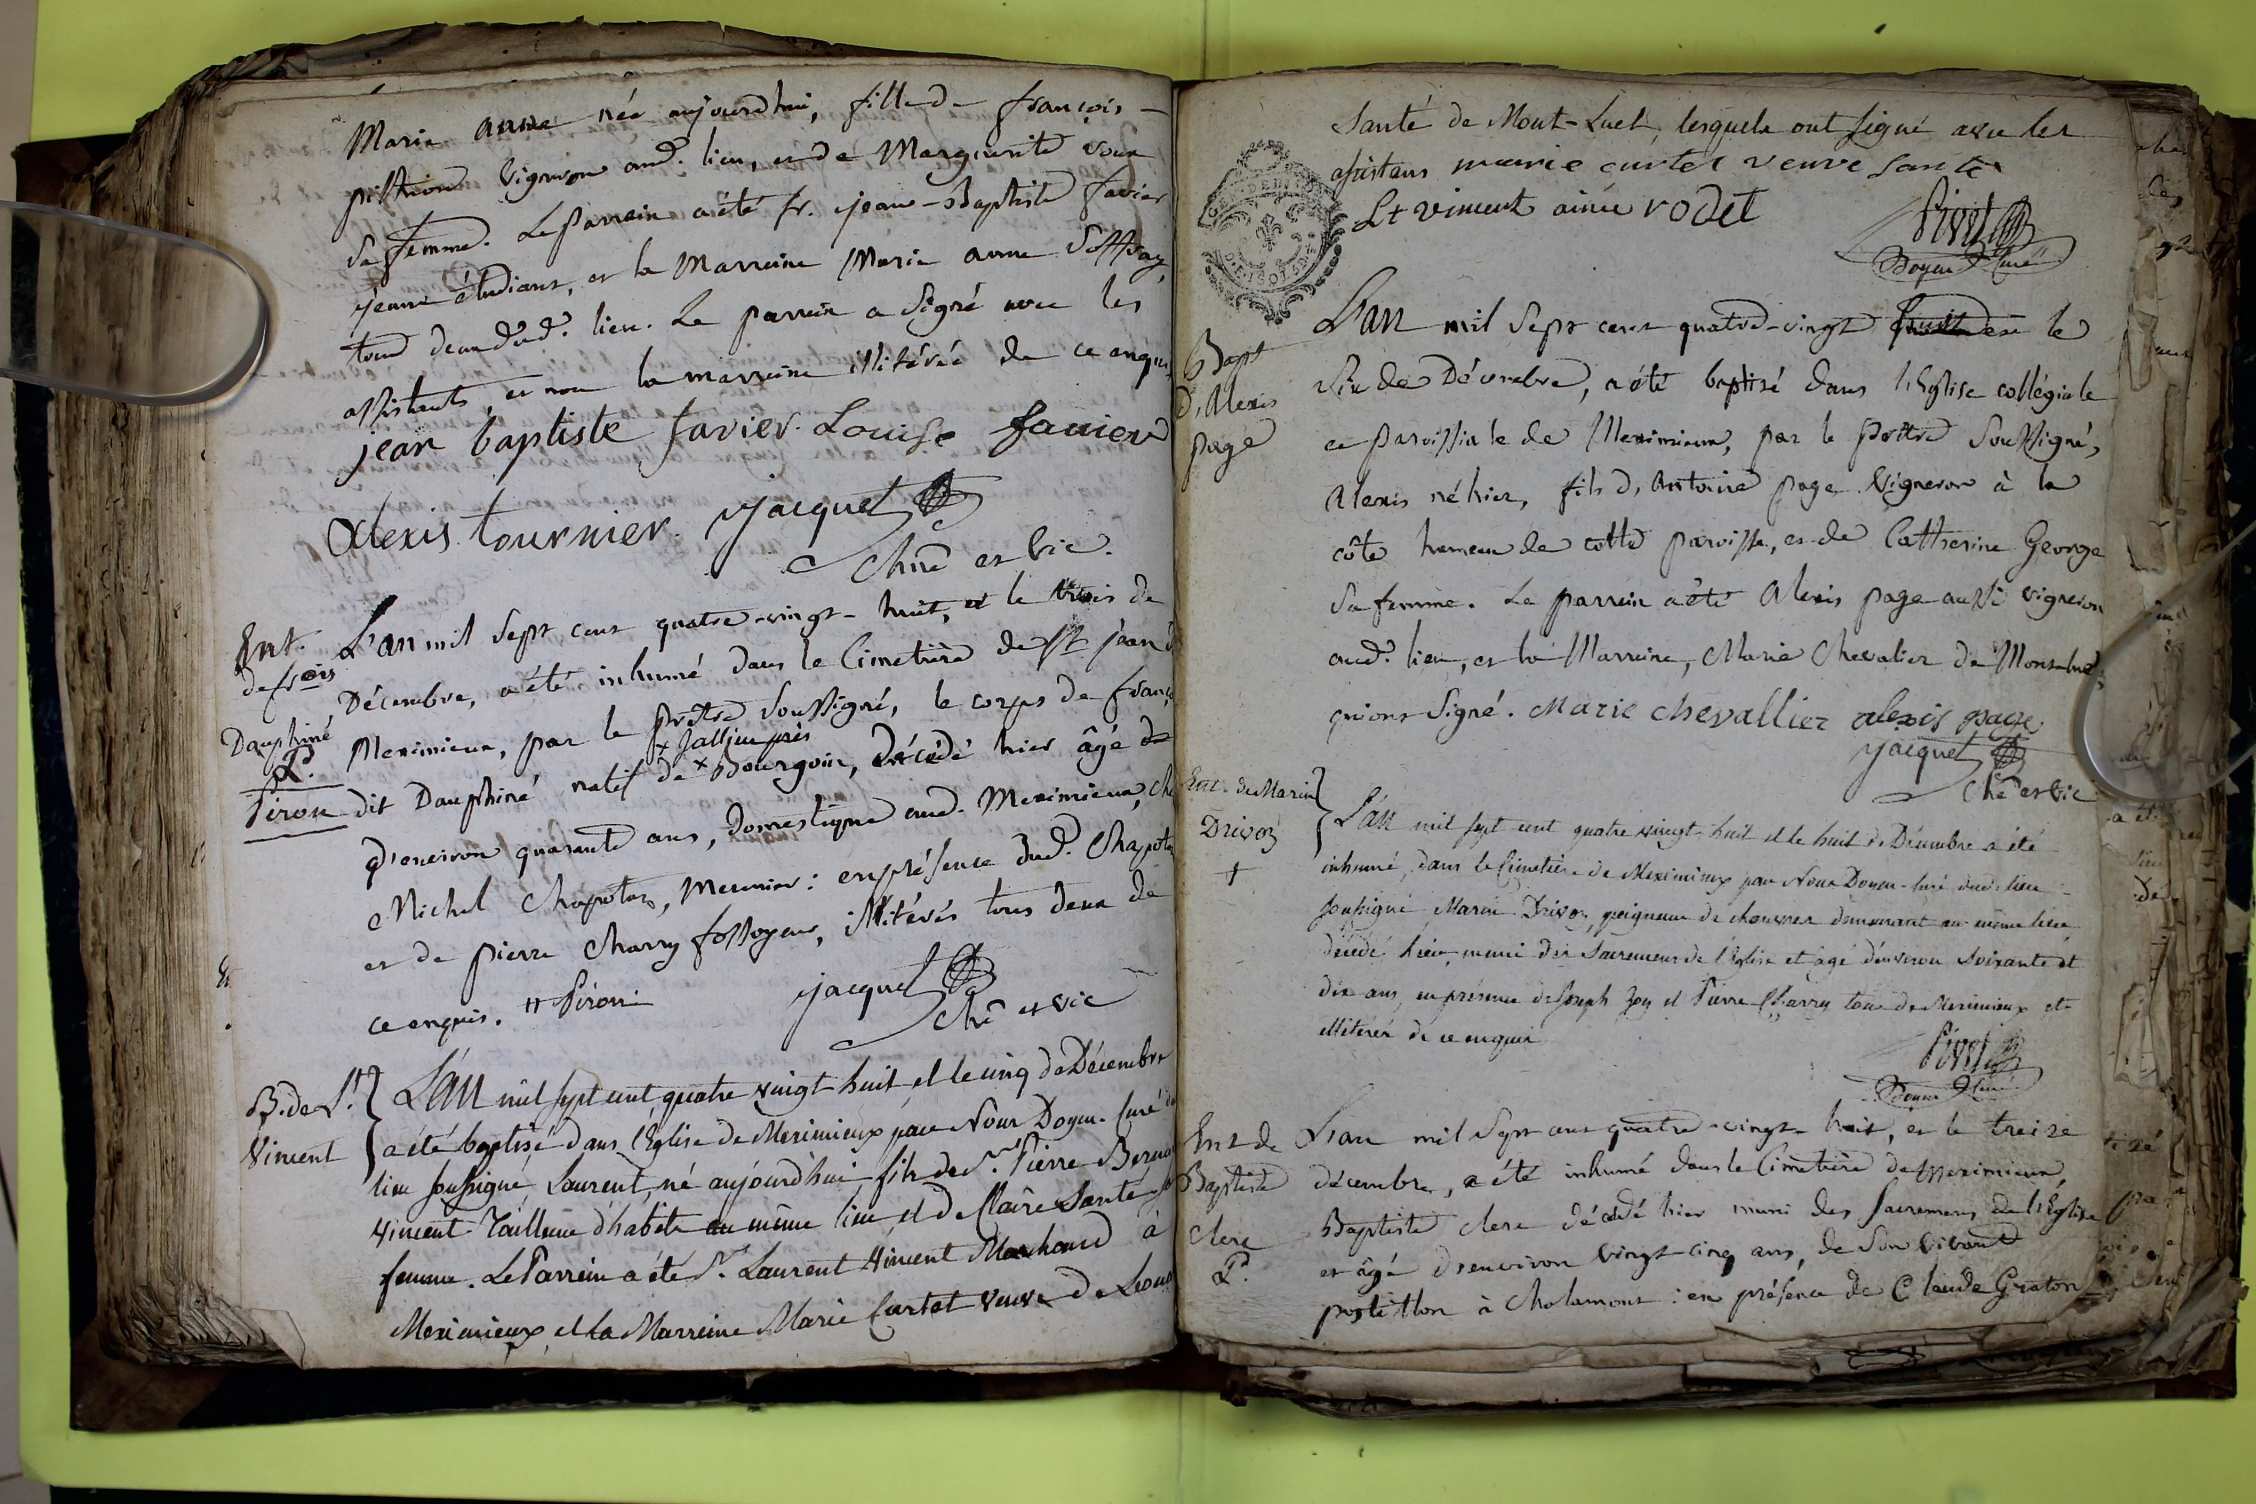 Marie anne née aujourdhui, fille de françois
pithiou vigneron aud. lieu, et de Marguerite
sa femme. Le parrein a été sr. jean-Baptiste favier
jeune étudiant, et la Marreine Marie anne
tous deux dud. lieu. Le parrein a signé avec les
assistants, et non la marreine illitérée de ce enquis
jean baptiste favier. Louise favier
Alexis tournier. jacquet
chne et vic.
Ent.
de frois
Dauphiné
Pd.
Piron
L'an mil sept cent quatre-vingt-huit, et le trois de
Décembre, a été inhumé dans le Cimetière de St jean de
Meximieux, par le prêtre soussigné, le corps de franç
x Jallieu près
dit Dauphiné natif de x Bourgoin, décédé hier âgé de
d'environ quarante ans, domestique aud. Meximieux, ch
Michel Chapotar, meunier: en présence dud. Chapotar
et de pierre Charry fossoyeur, illitérés tous deux de
ce enquis. # Piron
jacquet
chne et vic
B. de Lt.
Vincent
L'an mil sept cent quatre vingt-huit et le cinq de Décembre
a été baptisé dans l'Eglise de Meximieux par Nous Doyen-Curé du
lieu soussigné Laurent, né aujourd'hui fils de sr. Pierre
Vincent Tailleur d'habits au même lieu et de Claire Santé sa
femme. Le Parrein a été Sr. Laurent Vincent Marchand à
Meximieux et la Marreine Marie Curtet veuve de
Santé de Mont-Luel, lesquels ont signé avec les
assistans marie curtet veuve santé
Lt vincent ainée rodet
Pivet
Doyen Curé
Bapt
d'Alexis
page
L'an mil sept cent quatre-vingt huit et le
six de Décembre, a été baptisé dans l'Eglise collégiale
et paroissiale de Meximieux, par le prêtre soussigné,
Alexis né hier, fils d'Antoine page vigneron à la
côte hameau de cette paroisse, et de Catherine George
sa femme. Le parrein a été Alexis page aussi vigneron
aud. lieu, et la Marreine, Marie Chevalier de Montluel,
qui ont signé. Marie chevallier alexis page
jacquet
chne et vic
Ent. de Marin
Drivoz
+
L'an mil sept cent quatre vingt-huit et le huit de Décembre a été
inhumé dans le Cimetière de Meximieux par Nous Doyen-Curé dud. lieu
soussigné Marin Drivoz peigneur de chanvres demeurant au même lieu
décédé hier, muni des Sacremens de l'Eglise et âgé d'environ soixante et
dix ans, en présence de Joseph Joy et Pierre Charry tous de Meximieux et
illitérés de ce enquis
Pivet
Doyen Curé
Ent de
Baptiste
clerc
Pd.
L'an mil Sept cent quatre-vingt-huit, et le treize
décembre, a été inhumé dans le Cimetière de Meximieux,
Baptiste clerc décédé hier muni des Sacremens de l'Eglise
et âgé d'environ vingt-cinq ans, de son vivant
postillon à Chalamont: en présence de Claude Graton